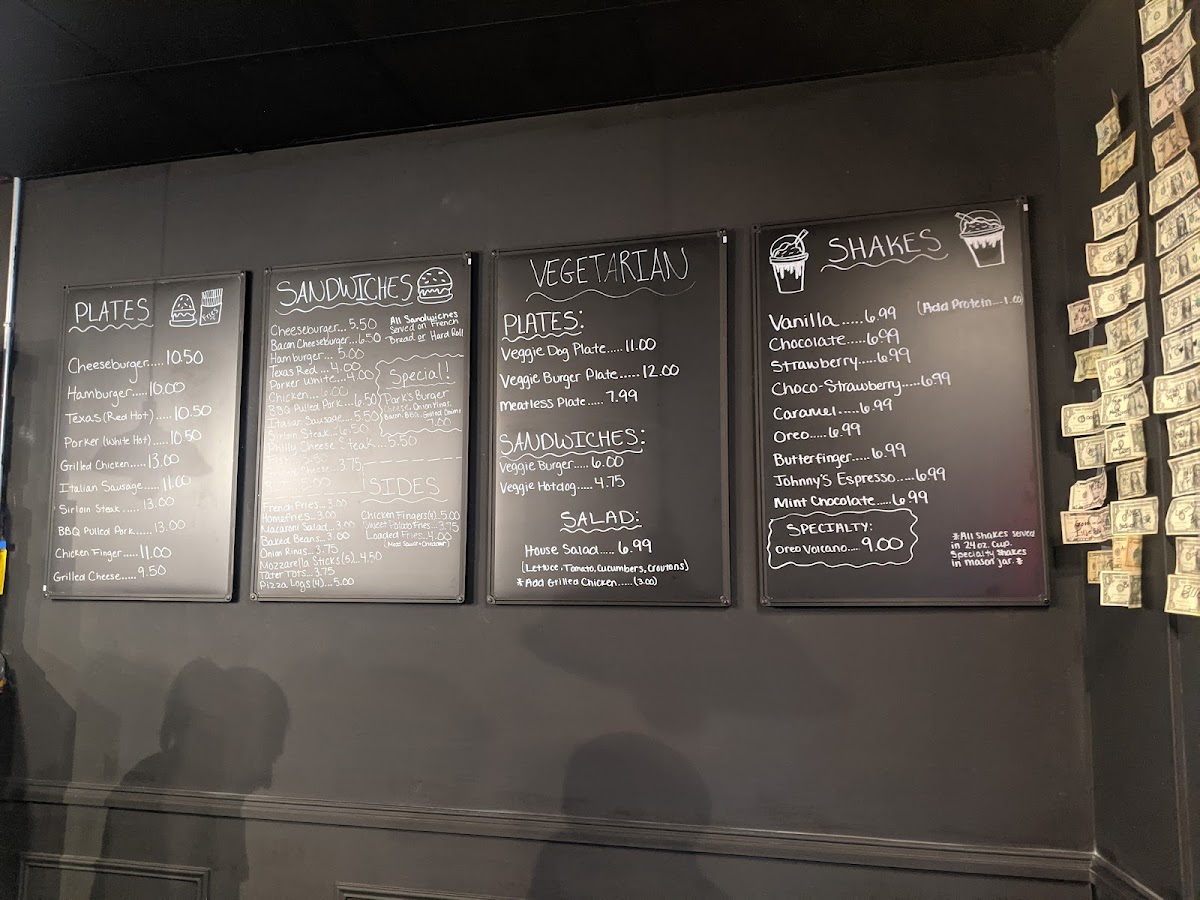 PLATES
FRIES
Cheeseburger.....10.50
Hamburger.....10.00
Texas (Red Hot).....10.50
Porker (White Hot).....10.50
Grilled Chicken.....13.00
Italian Sausage.....11.00
Sirloin Steak.....13.00
BBQ Pulled Pork.....13.00
Chicken Finger.....11.00
Grilled Cheese.....9.50
SANDWICHES
All Sandwiches
Served on French
Bread or Hard Roll
Cheeseburger...5.50
Bacon Cheeseburger...6.50
Hamburger...5.00
Texas Red...4.00
Porker White...4.00
Chicken...6.00
BBQ Pulled Pork...6.50
Italian Sausage...5.50
Sirloin Steak...6.50
Philly Cheese Steak...5.50
Cheese...3.75
Special!
Park's Burger
Cheese, Onion Rings,
Bacon, BBQ, Grilled Onions
7.00
SIDES
French Fries...3.00
Homefries...3.00
Macaroni Salad...3.00
Baked Beans...3.00
Onion Rings...3.75
Mozzarella Sticks (5)...4.50
Tater Tots...3.75
Pizza Logs (4)...5.00
Chicken Fingers(4)...5.00
Sweet Potato Fries...3.75
Loaded Fries...4.00
(Meat Sauce + Cheddar)
VEGETARIAN
PLATES:
Veggie Dog Plate.....11.00
Veggie Burger Plate.....12.00
Meatless Plate.....7.99
SANDWICHES:
Veggie Burger.....6.00
Veggie Hotdog.....4.75
SALAD:
House Salad.....6.99
(Lettuce, Tomato, Cucumbers, Croutons)
*Add Grilled Chicken.....(3.00)
SHAKES
Vanilla.....6.99 (Add Protein...1.00)
Chocolate.....6.99
Strawberry.....6.99
Choco-Strawberry.....6.99
Caramel.....6.99
Oreo.....6.99
Butterfinger.....6.99
Johnny's Espresso.....6.99
Mint Chocolate.....6.99
SPECIALTY:
Oreo Volcano.....9.00
*All Shakes served
in 24oz. Cup.
Specialty Shakes
in mason jar.*